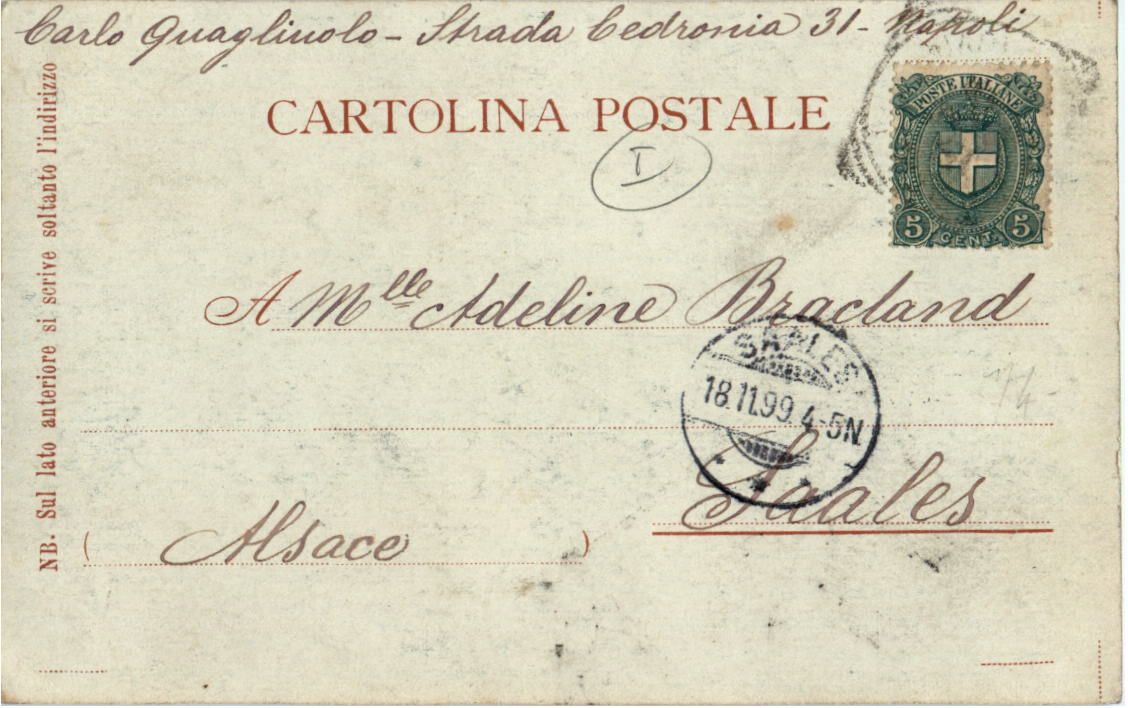 Carlo Quagliuolo - Strada Cedronia 31 - Napoli
CARTOLINA POSTALE
I
POSTE ITALIANE
5 CENT. 5
A Mlle Adeline Bracland
SAALES
18.11.99. 4-5N.
Saales
( Alsace )
NB. Sul lato anteriore si scrive soltanto l'indirizzo